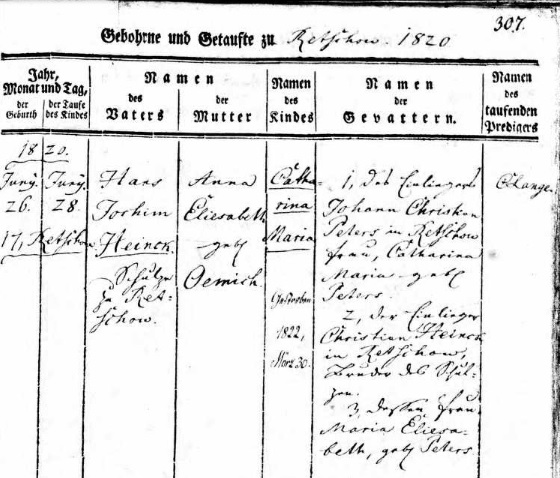 307.
Gebohrne und Getaufte zu Retschow. 1820
Jahr,
Monat und Tag,
der Geburth
der Taufe des Kindes
Namen
des
Vaters
der
Mutter
Namen
des
Kindes
Namen
der
Gevattern.
Namen
des
taufenden
Predigers
1820.
Juny.
26.
Juny.
28.
17, Retschow
Hans
Jochim
Heinck.
Schulze
zu Ret-
schow.
Anna
Eliesabeth
geb
Oemich
Catha-
rina
Maria
Gestorben
1822,
März 30.
1, des Einliegers
Johann Christian
Peters in Retschow
frau, Catharina
Maria geb
Peters.
2, der Einlieger
Christian Heinck
in Retschow,
Bruder des Schul-
zen.
3, dessen frau
Maria Eliesa-
beth, geb Peters.
Lange